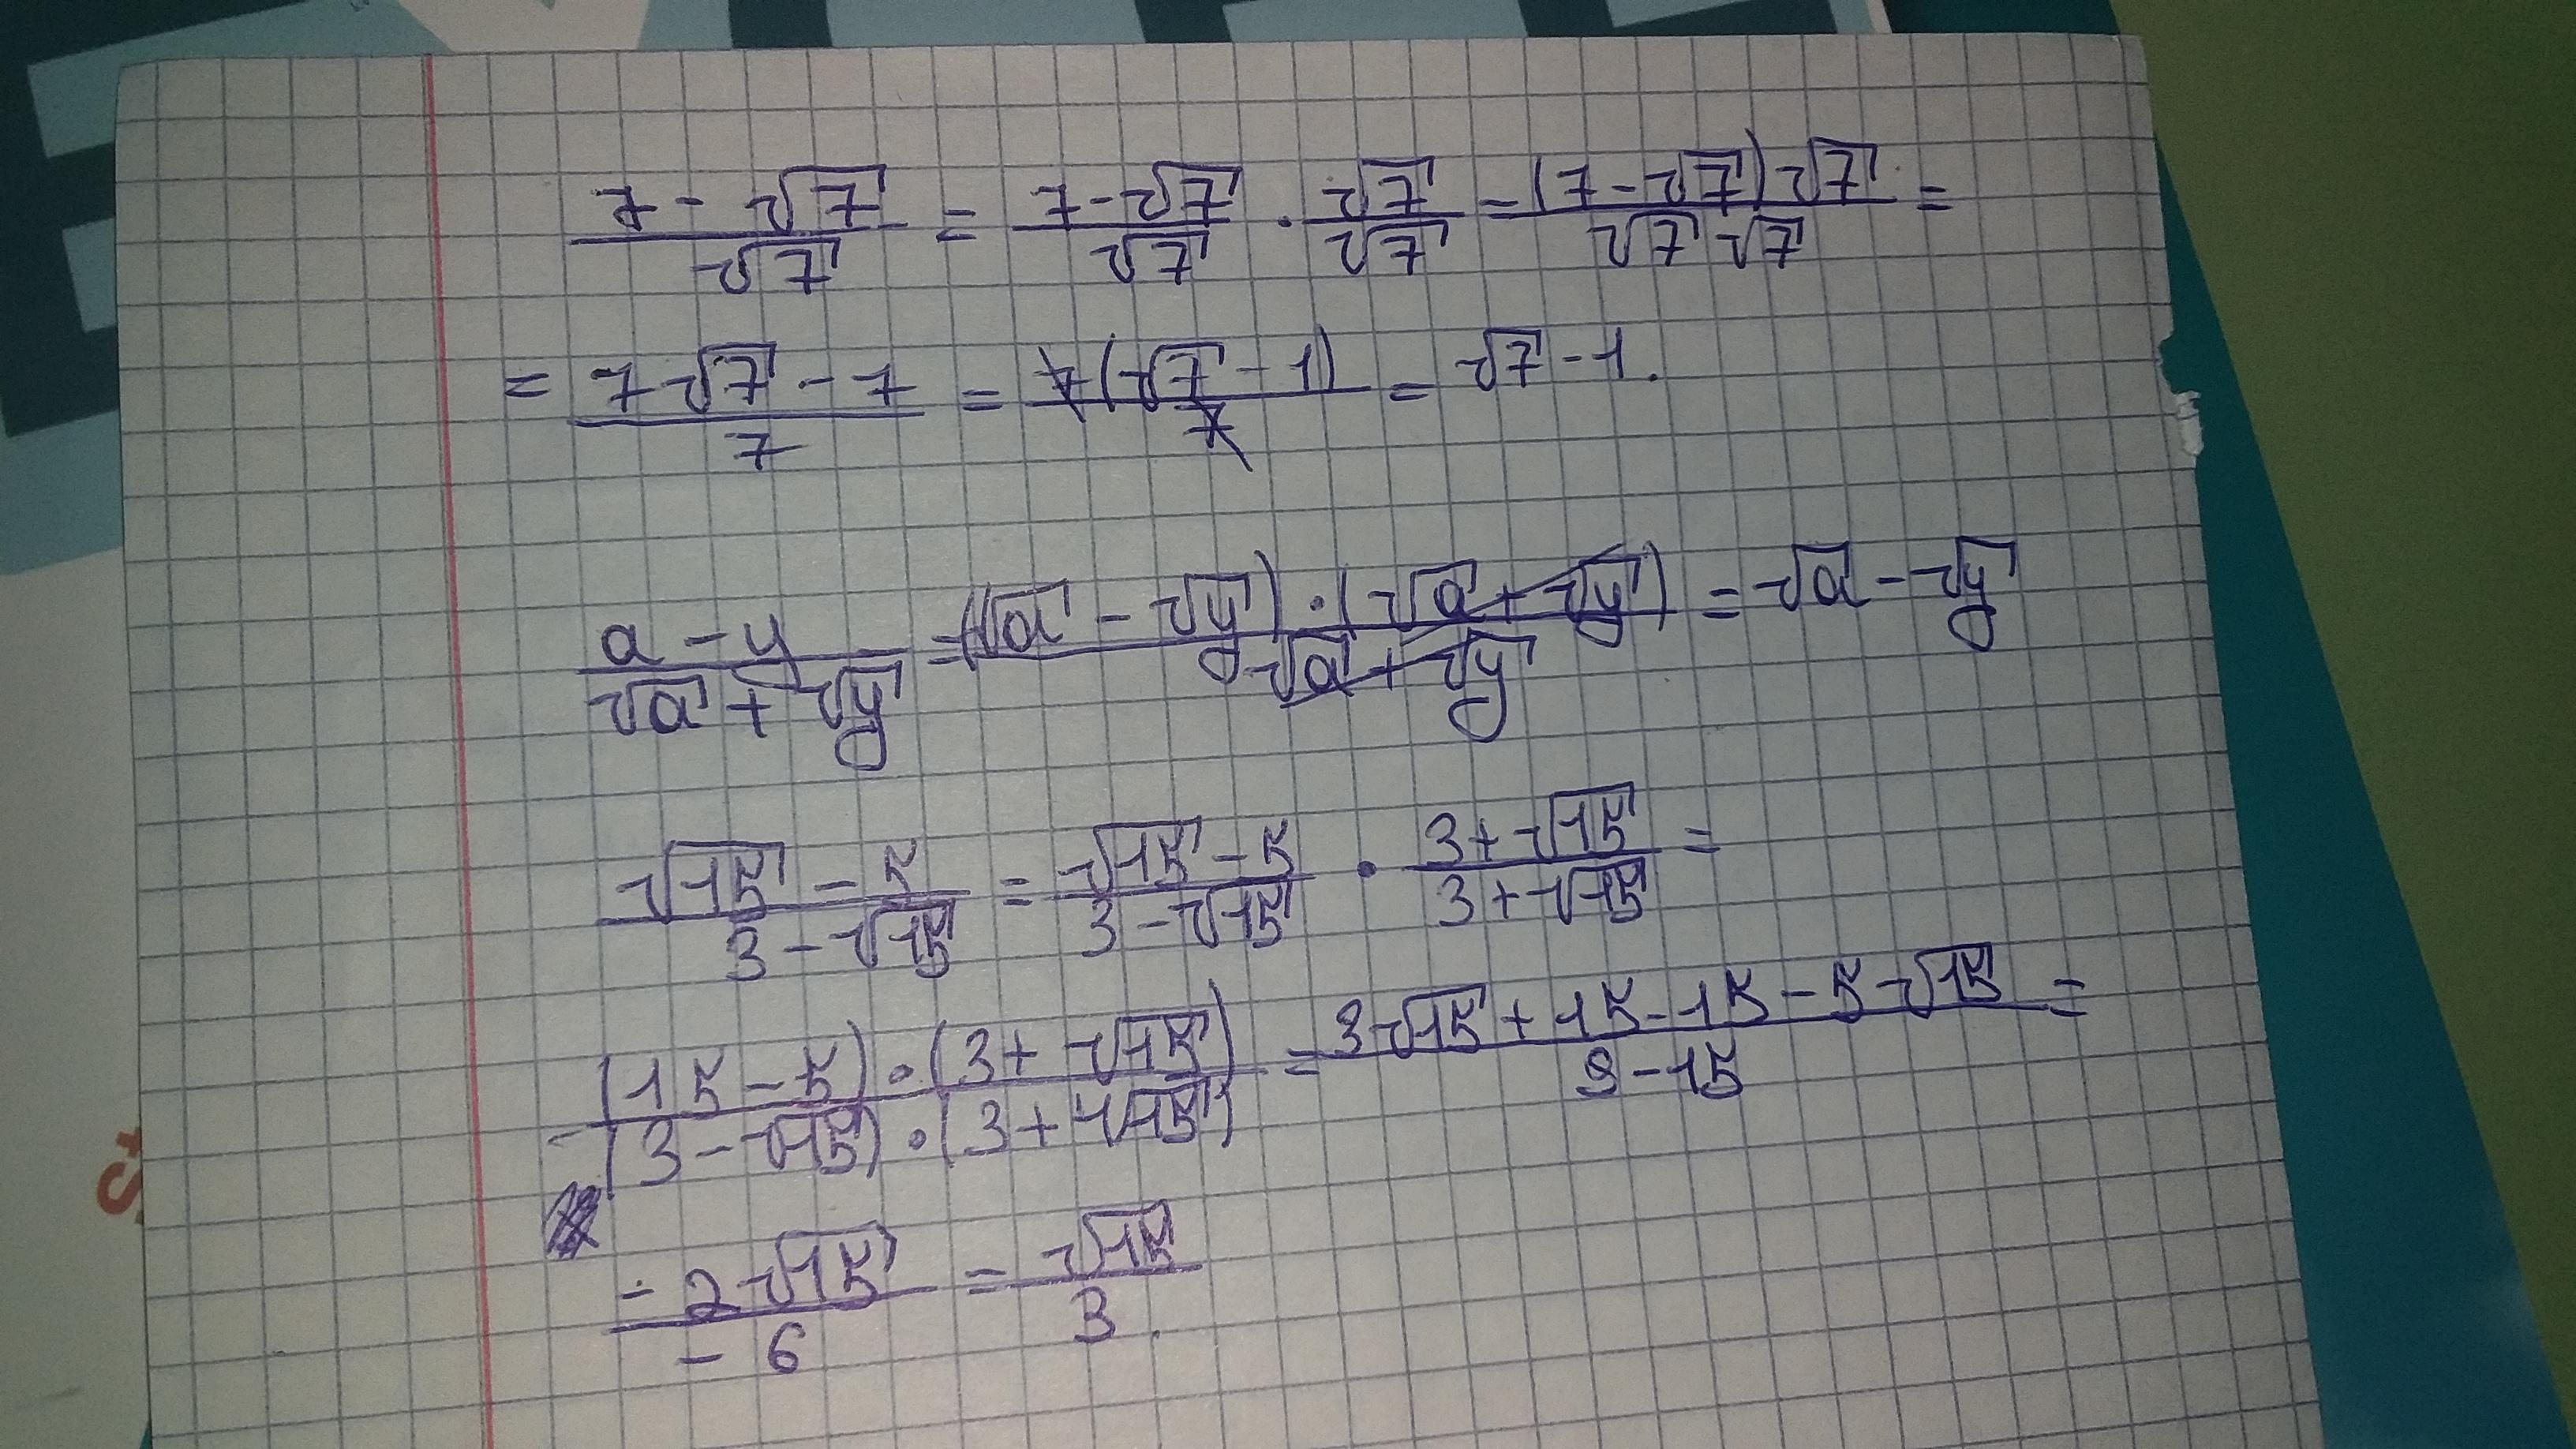 (7 - √7)/√7 = (7 - √7)/√7 · √7/√7 = ((7 - √7)√7)/(√7 √7) =
= (7√7 - 7)/7 = 7(√7 - 1)/7 = √7 - 1.
(a - y)/(√a + √y) = ((√a - √y) · (√a + √y))/(√a + √y) = √a - √y
(√15 - 5)/(3 - √15) = (√15 - 5)/(3 - √15) · (3 + √15)/(3 + √15) =
((15 - 5) · (3 + √15))/((3 - √15) · (3 + √15)) = (3√15 + 15 - 15 - 5√15)/(9 - 15) =
(-2√15)/(-6) = √15/3.